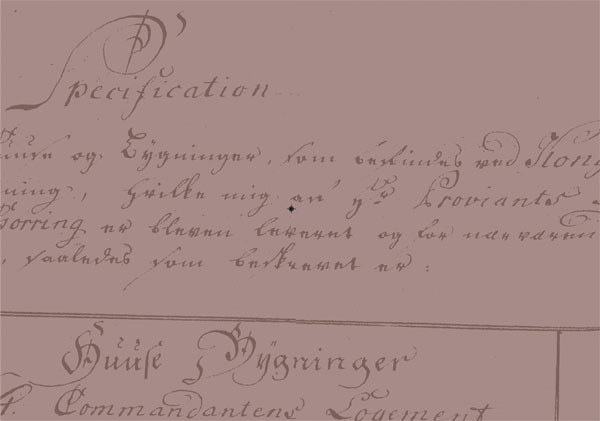 Specification
huuse og Bygninger, som befindes ved Kong
ning, hvilke mig af Hr Proviants
Gorring er bleven leveret og for nærværen
, saaledes som beskrevet er:
Huuse Bygninger
Commandantens Logement